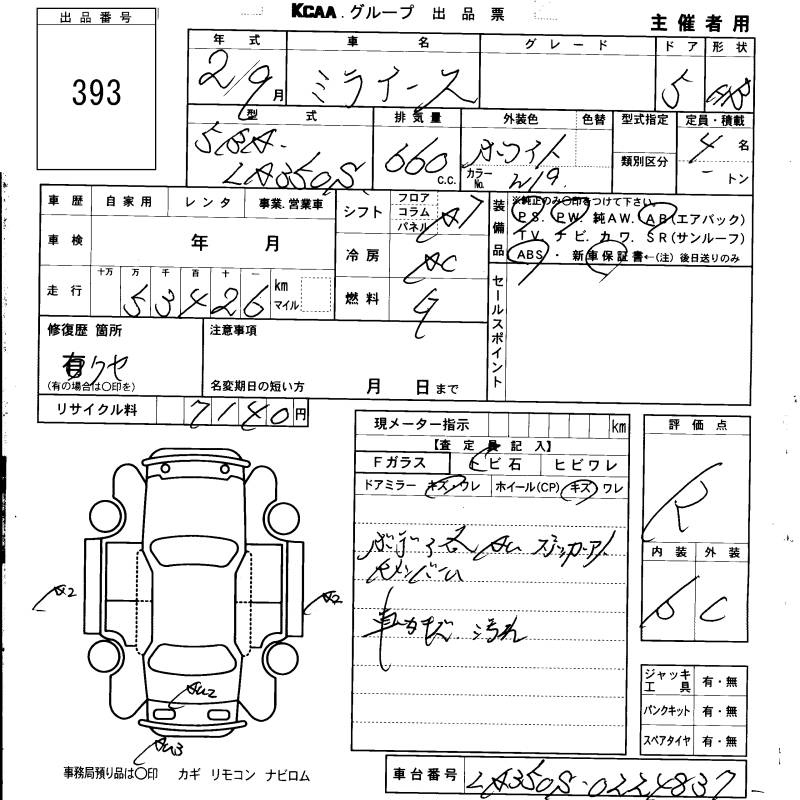 出品番号
393
KCAA グループ 出品票
主催者用
年式 車名 グレード ドア 形状
2/9月 ミライース 5
型式 排気量 外装色 色替 型式指定 定員・積載
5BA-LA350S 660 C.C. ホワイト カラーNo. W19 類別区分 4名 - トン
車歴 自家用 レンタ 事業.営業車
シフト フロア コラム パネル AT
装備品 ※純正のみ〇印をつけて下さい。
PS. PW. 純AW. AB(エアバック)
TV. ナビ. カワ. SR(サンルーフ)
ABS ・ 新車保証書←(注) 後日送りのみ
車検 年 月
冷房 AC
走行 十万 万 千 百 十 一 km マイル
53426
燃料 G
セールスポイント
修復歴 箇所
有
(有の場合は〇印を)
注意事項
名変期日の短い方 月 日まで
リサイクル料 7140円
現メーター指示 km
【査定員記入】
Fガラス トビ石 ヒビワレ
ドアミラー キズ・ワレ ホイール(CP) キズ ワレ
車内キズ 汚れ
評価点
R
内装 外装
D C
A2 A2
AU2
AU3
ジャッキ工具 有・無
パンクキット 有・無
スペアタイヤ 有・無
事務局預り品は〇印 カギ リモコン ナビロム
車台番号 LA350S-0224837